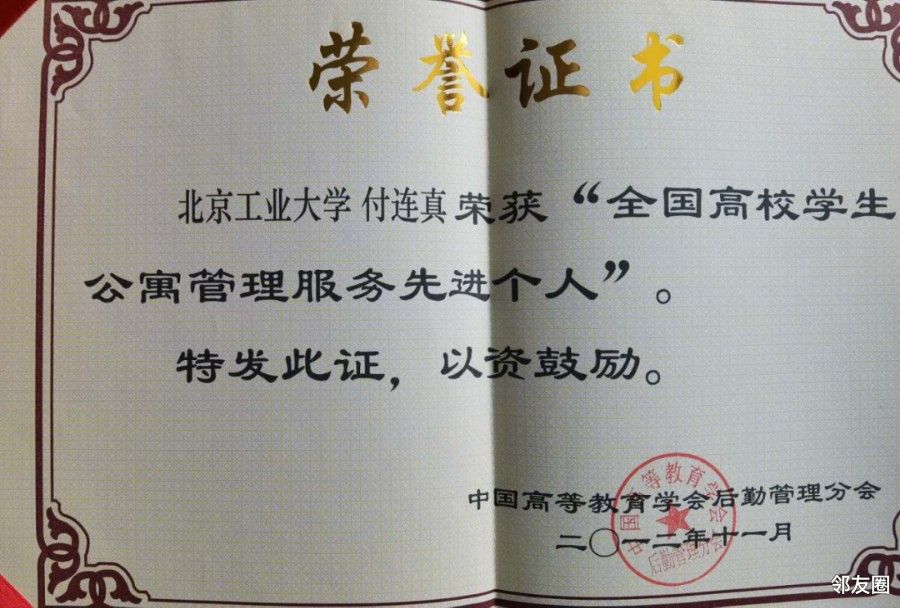 荣誉证书
北京工业大学 付连真 荣获“全国高校学生
公寓管理服务先进个人”。
特发此证，以资鼓励。
中国高等教育学会后勤管理分会
二〇一二年十一月
中国高等教育学会
后勤管理分会
邻友圈